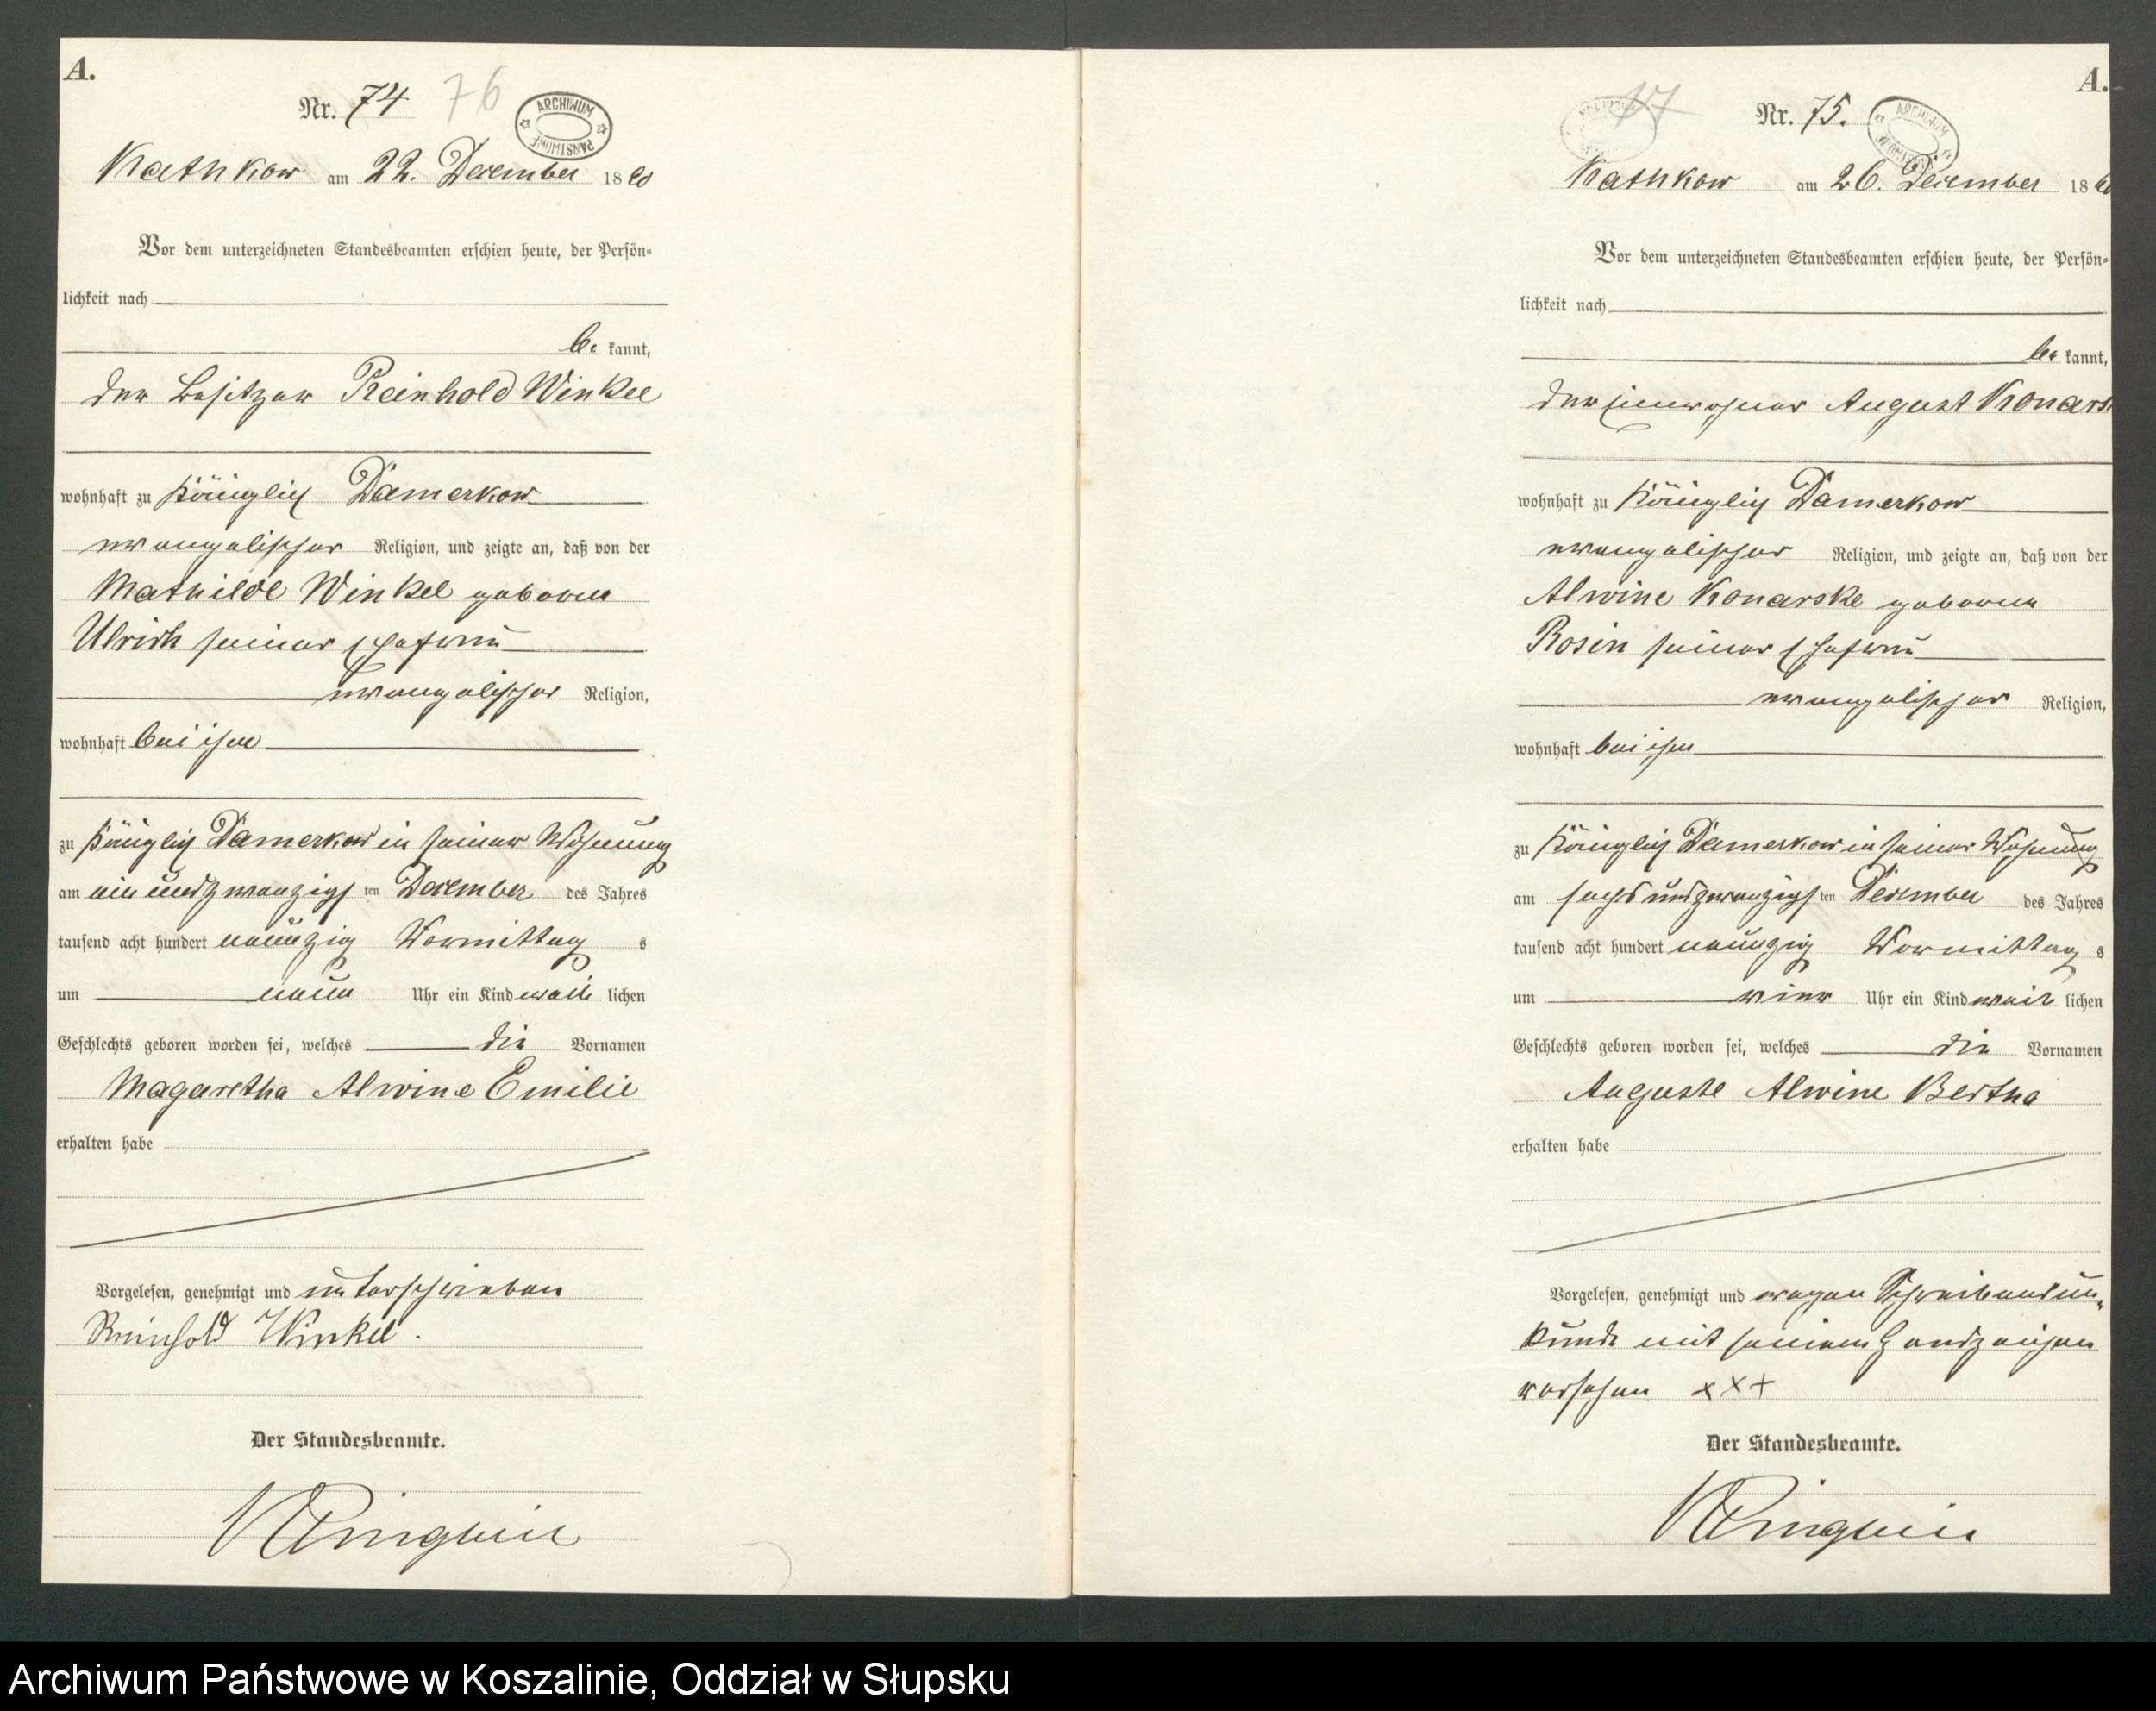 A.
Nr. 74 76
ARCHIWUM PAŃSTWOWE
Kathkow am 22. December 1890
Vor dem unterzeichneten Standesbeamten erschien heute, der Persön-
lichkeit nach
be kannt,
der Besitzer Reinhold Winkel
wohnhaft zu Königlich Damerkow
evangelischer Religion, und zeigte an, daß von der
Mathilde Winkel geborene
Ulrich seiner Ehefrau
evangelischer Religion,
wohnhaft bei ihm
zu Königlich Damerkow in seiner Wohnung
am ein und zwanzigsten December des Jahres
tausend acht hundert neunzig Vormittags
um neun Uhr ein Kind weiblichen
Geschlechts geboren worden sei, welches die Vornamen
Magaretha Alwine Emilie
erhalten habe
Vorgelesen, genehmigt und unterschrieben
Reinhold Winkel.
Der Standesbeamte.
A.
77 Nr. 75.
ARCHIWUM
Kathkow am 26. December 1890
Vor dem unterzeichneten Standesbeamten erschien heute, der Persön-
lichkeit nach
be kannt,
der Einwohner August Konars
wohnhaft zu Königlich Damerkow
evangelischer Religion, und zeigte an, daß von der
Alwine Konarske geborene
Rosin seiner Ehefrau
evangelischer Religion,
wohnhaft bei ihm
zu Königlich Damerkow in seiner Wohnung
am sechs und zwanzigsten December des Jahres
tausend acht hundert neunzig Vormittags
um vier Uhr ein Kind weiblichen
Geschlechts geboren worden sei, welches die Vornamen
Auguste Alwine Bertha
erhalten habe
Vorgelesen, genehmigt und wegen Schreibensun-
kunde mit seinem Handzeichen
versehen xxx
Der Standesbeamte.
Archiwum Państwowe w Koszalinie, Oddział w Słupsku